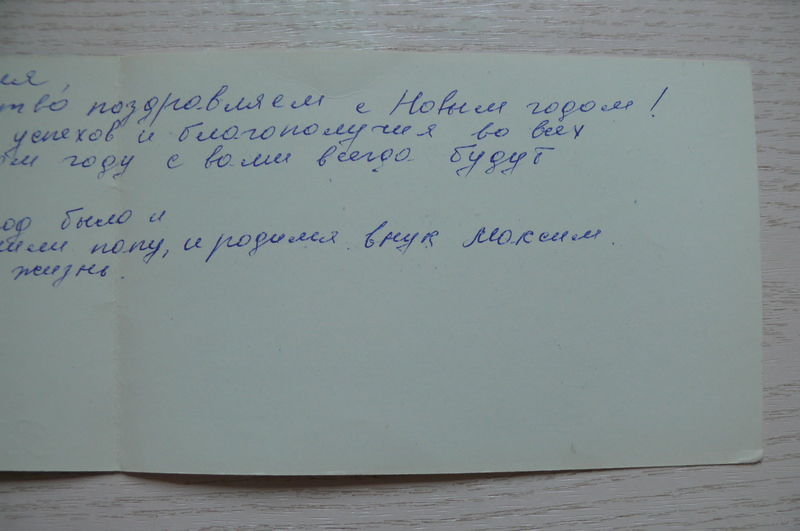 ия
тво поздравляем с Новым годом!
успехов и благополучия во всех
ом году с вами всегда будут
од было и
или папу, и родился внук Максим.
жизнь.